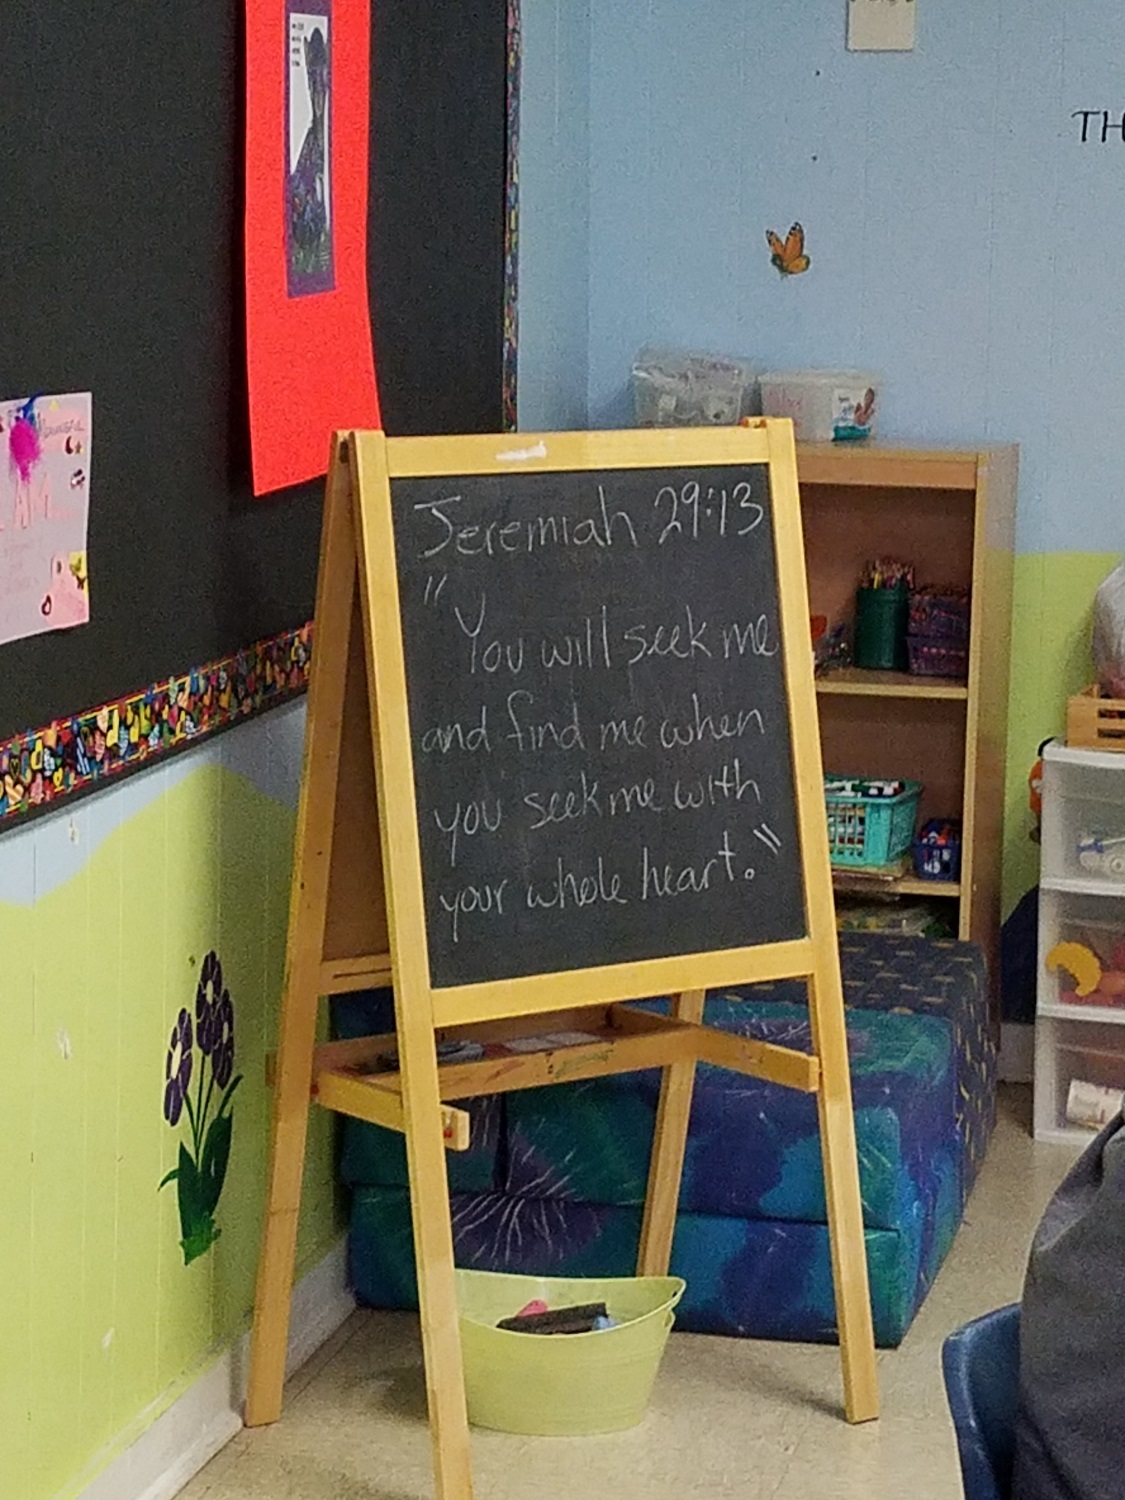 Jeremiah 29:13
"You will seek me
and find me when
you seek me with
your whole heart."
TH